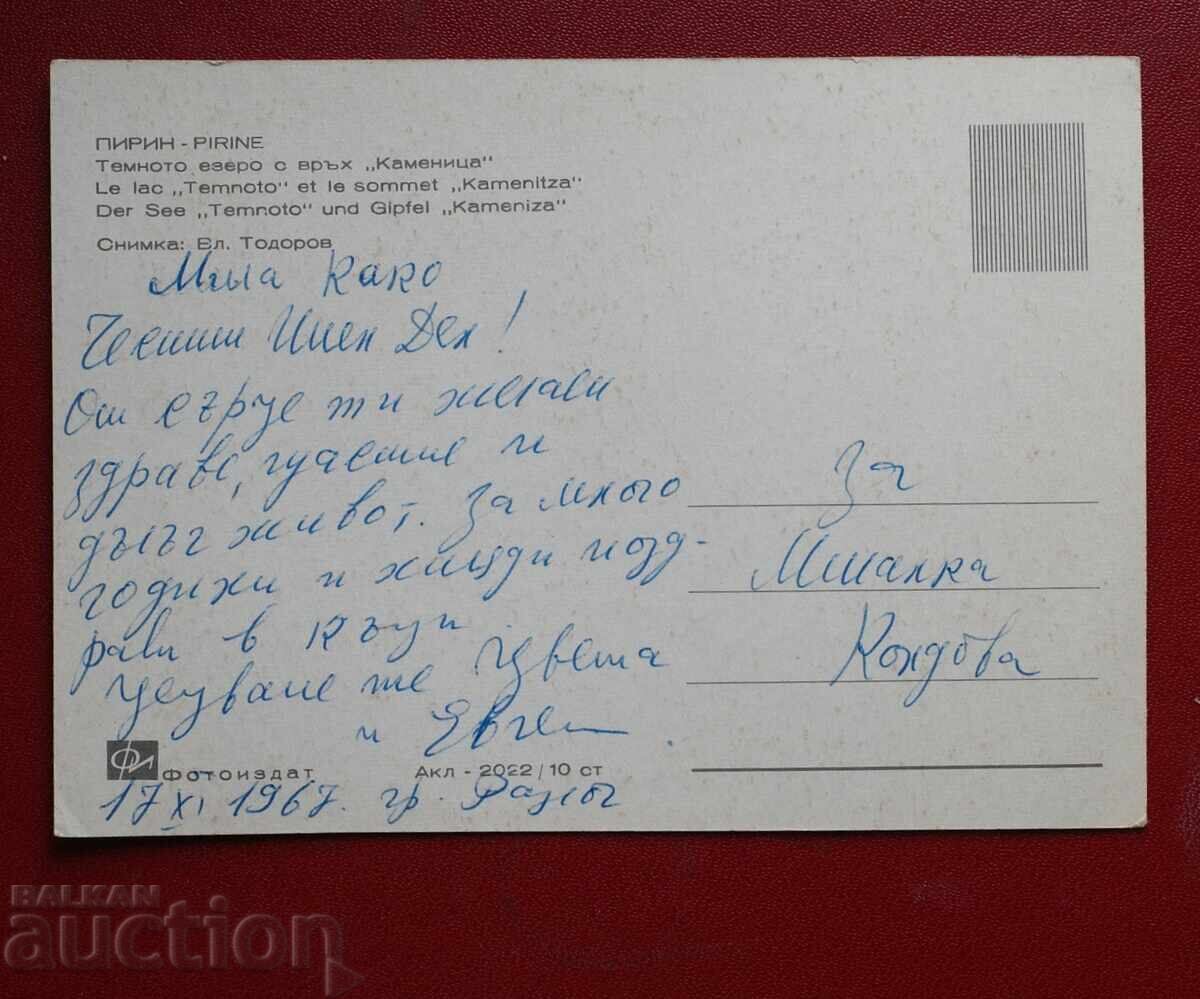 ПИРИН - PIRINE
Темното езеро с връх „Каменица"
Le lac „Temnoto" et le sommet „Kamenitza"
Der See „Temnoto" und Gipfel „Kameniza"
Снимка: Вл. Тодоров
Мила Како
Честит Имен Ден!
От сърце ти желаем
здраве, щастие и
дълъг живот. За много
години и хиляди позд-
рави в къщи
Целуваме те Цвета
и Евген
За
Миланка
Кондова
Фотоиздат
Акл - 2022/10 ст
17 XI 1967. гр.
BALKAN
auction